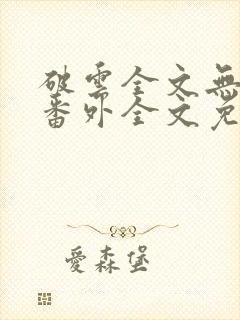 破雲全文無
番外全文免
愛森堡